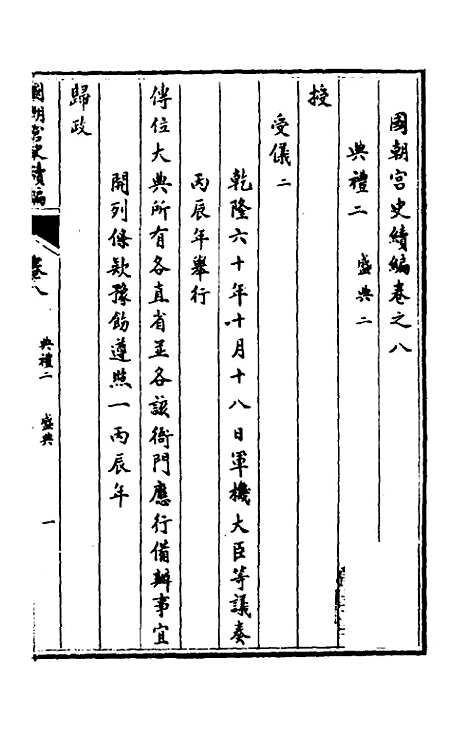 國朝宮史續編卷之八
典禮二 盛典二
授
受儀二
乾隆六十年十月十八日軍機大臣等議奏
丙辰年舉行
傳位大典所有各直省並各該衙門應行備辦事宜
開列條欵豫飭遵照一丙辰年
歸政
國朝宮史續編
卷八
典禮二 盛典
一